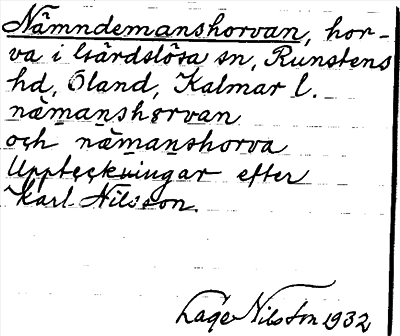 Nämndemanshorvan, hor-
va i Gärdslösa sn, Runstens
hd, Öland, Kalmar l.
nämanshorvan
och nämanshorva
Uppteckningar efter
Karl Nilsson.
Lage Nilsson 1932